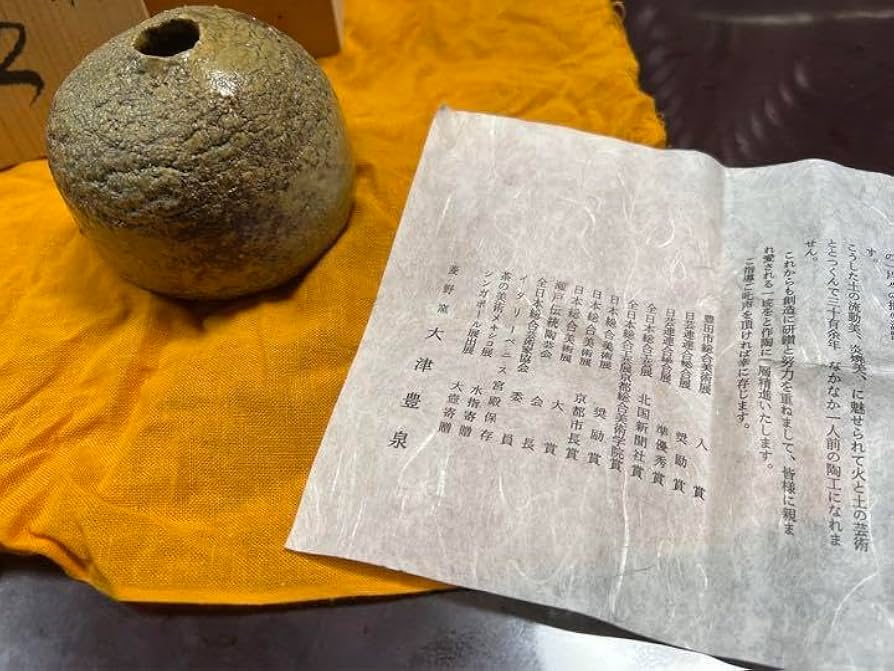 す。
こうした土の流動美、炎焼美、に魅せられて火と土の芸術
ととつくんで三十有余年 なかなか一人前の陶工になれま
せん。
これからも創造に研鑽と努力を重ねまして、皆様に親ま
れ愛される一碗をと作陶に一層精進いたします。
ご指導ご叱声を頂ければ幸に存じます。
豊田市総合美術展 入賞
日芸連連合総合展 奨励賞
日芸連連合総合展 準優秀賞
全日本総合工芸展 北国新聞社賞
全日本総合工芸展京都総合美術学院賞
日本総合美術展 奨励賞
日本総合美術展 京都市長賞
日本総合美術展 大賞
瀬戸伝統陶芸会 会長
全日本総合芸術愛協会 委員
イタリーベニス宮殿保存
茶の美術メキシコ展 水指寄贈
シンガポール展出展 大壺寄贈
菱野窯 大津豊泉